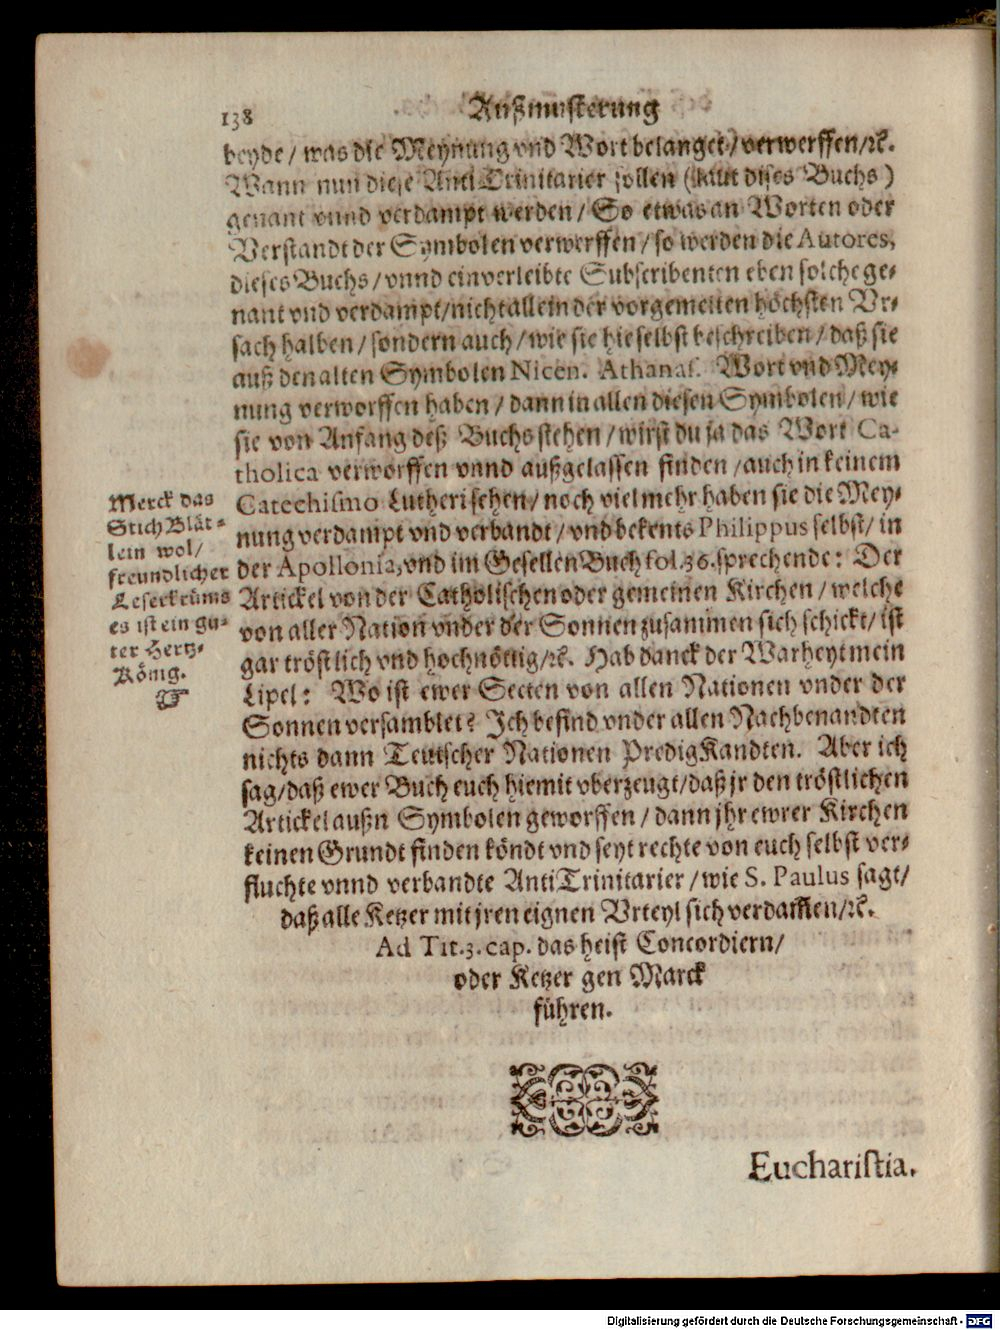 138
Außmusterung
beyde / was die Meynung vnd Wort belanget / verwerffen /ꝛc.
Wann nun diese Anti Trinitarier sollen (laut dises Buchs)
genant vnnd verdampt werden / So etwas an Worten oder
Verstandt der Symbolen verwerffen / so werden die Autores,
dieses Buchs / vnnd einverleibte Subscribenten eben solche ge-
nant vnd verdampt / nicht allein der vorgemelten höchsten Vr-
sach halben / sondern auch / wie sie hieselbst beschreiben / daß sie
auß den alten Symbolen Nicen. Athanas. Wort vnd Mey-
nung verworffen haben / dann in allen diesen Symbolen / wie
sie von Anfang deß Buchs stehen / wirst du ja das Wort Ca-
tholica verworffen vnnd außgelassen finden / auch in keinem
Catechismo Lutheri sehen / noch vielmehr haben sie die Mey-
nung verdampt vnd verbandt / vnd bekents Philippus selbst / in
der Apollonia, vnd im Gesellen Buch fol. 36. sprechende: Der
Artickel von der Catholischen oder gemeinen Kirchen / welche
von aller Nation vnder der Sonnen zusammen sich schickt / ist
gar tröstlich vnd hochnöttig /ꝛc. Hab danck der Warheyt mein
Lipel: Wo ist ewer Secten von allen Nationen vnder der
Sonnen versamblet? Ich befind vnder allen Nachbenandten
nichts dann Teutscher Nationen PredigKandten. Aber ich
sag / daß ewer Buch euch hiemit vberzeugt / daß jr den tröstlichen
Artickel außn Symbolen geworffen / dann jhr ewrer Kirchen
keinen Grundt finden köndt vnd seyt rechte von euch selbst ver-
fluchte vnnd verbandte AntiTrinitarier / wie S. Paulus sagt /
daß alle Ketzer mit jren eignen Vrteyl sich verdammen /ꝛc.
Ad Tit. 3. cap. das heist Concordiern /
oder Ketzer gen Marck
führen.
Merck das
Stich Blät-
lein wol /
freundlicher
Leser kröms
es ist ein gu-
ter Hertz-
König.
☞
Eucharistia.
Digitalisierung gefördert durch die Deutsche Forschungsgemeinschaft - DFG